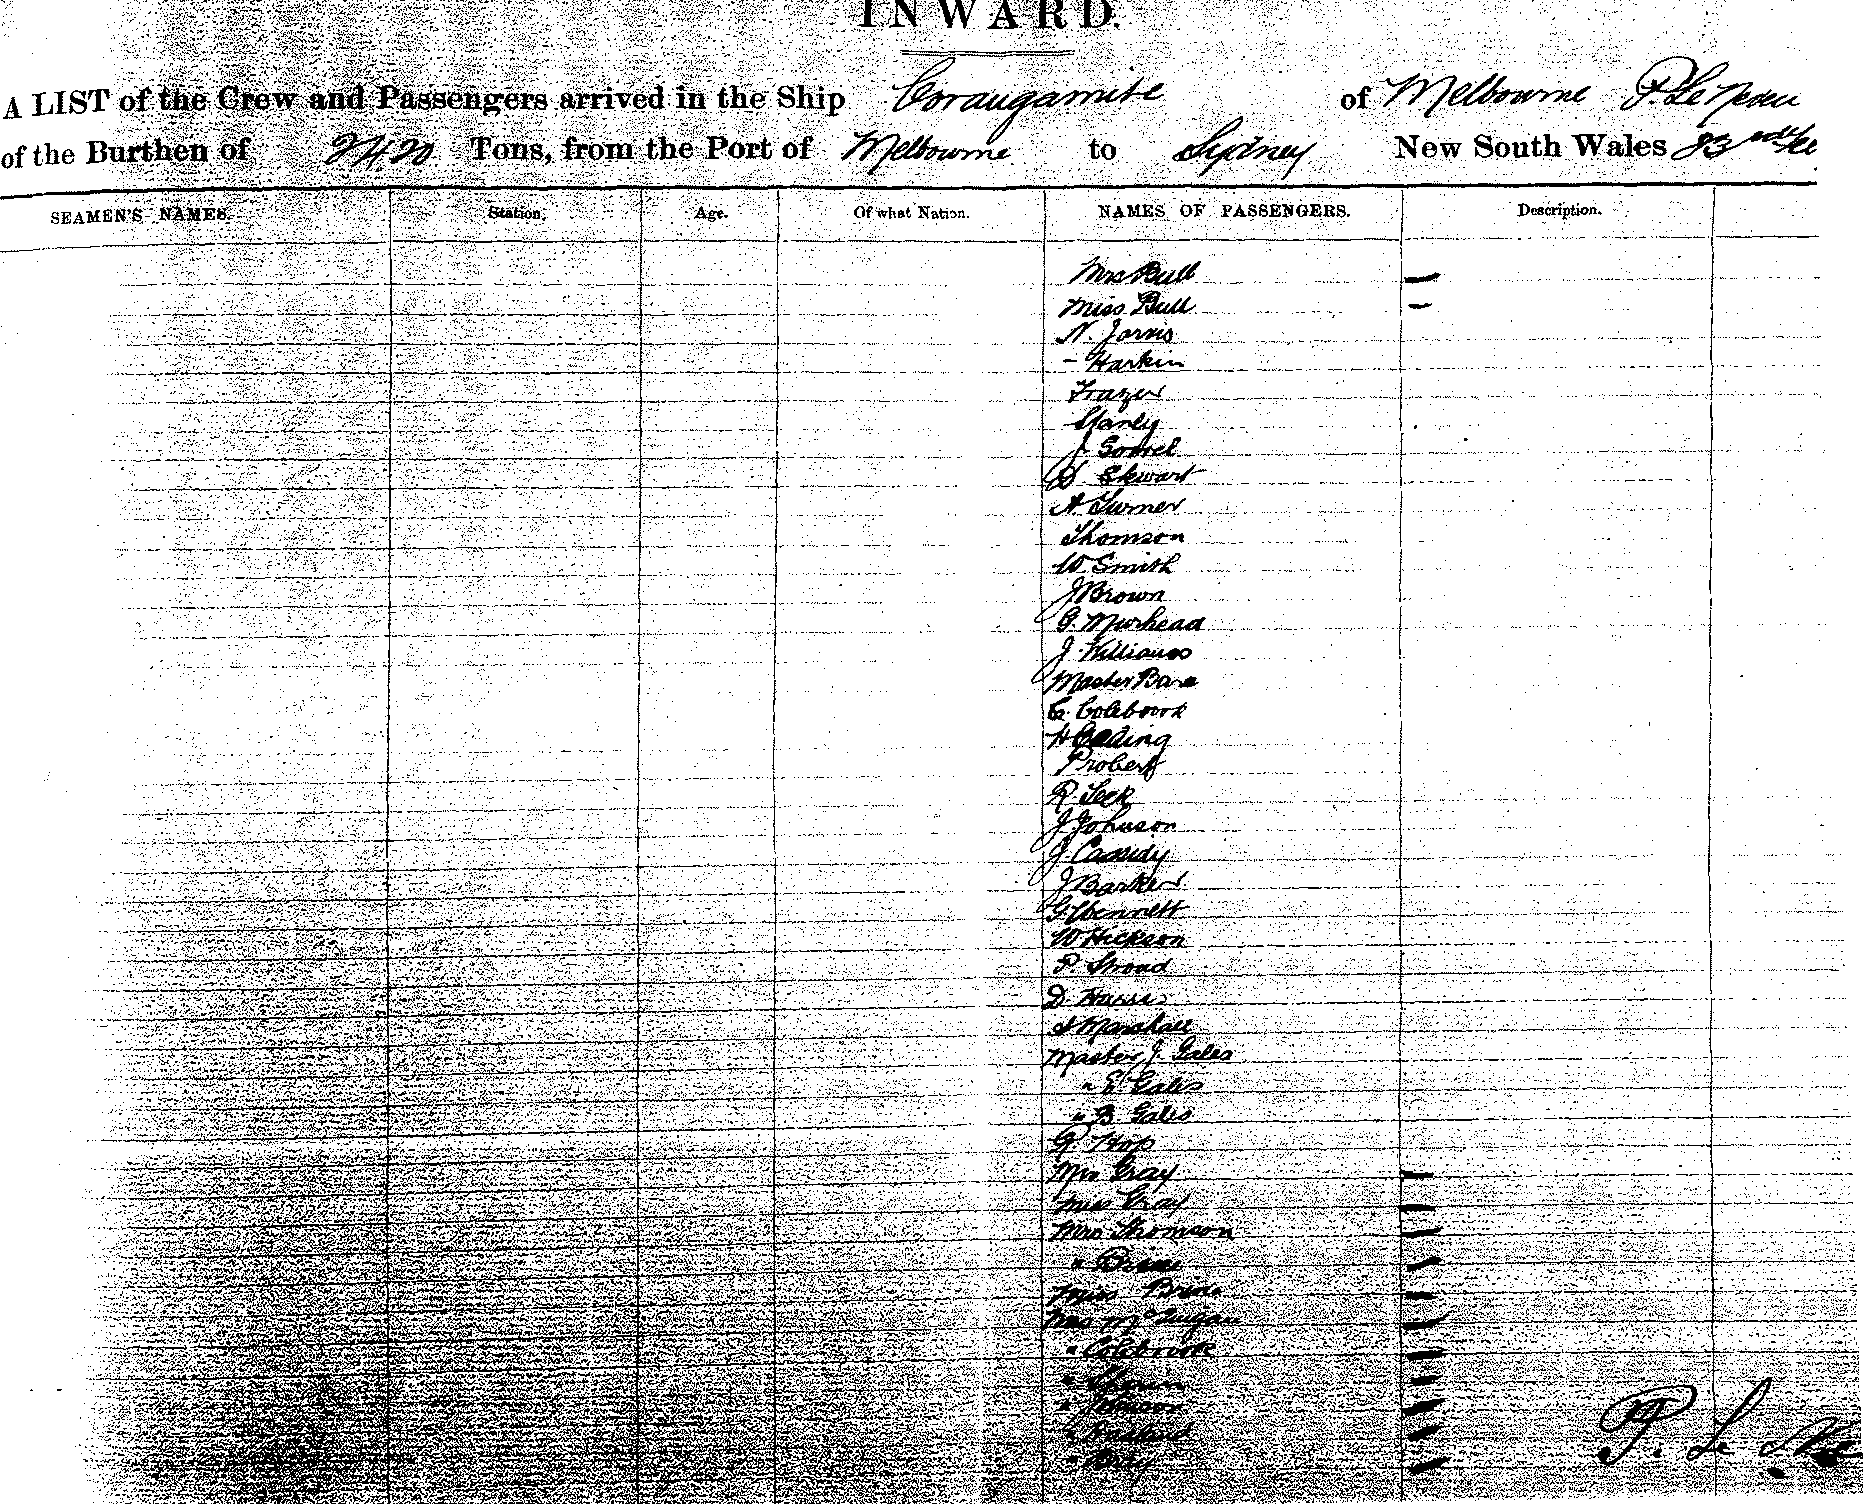 INWARD.
A LIST of the Crew and Passengers arrived in the Ship Corangamite of Melbourne P. Le
of the Burthen of 2420 Tons, from the Port of Melbourne to Sydney New South Wales
SEAMEN'S NAMES. Station. Age. Of what Nation. NAMES OF PASSENGERS. Description.
Mrs Bull
Miss Bull
N. Jarvis
- Harkin
Frazer
Stanly
J
Stewart
A Turner
Thomson
W. Smith
J Brown
G. Muirhead
J. Williams
Master
E. Colebrook
H
Probert
R.
J Johnson
J. Cassidy
J Barker
G Bennett
W Hickson
P. Stroud
D.
Marshall
Master J. Gales
" E Gales
" B Gales
Mrs Gray
Miss Gray
Mrs Thomson
"
Miss
Mrs
" Colebrook
"
" Johnson
"
"
P. Le